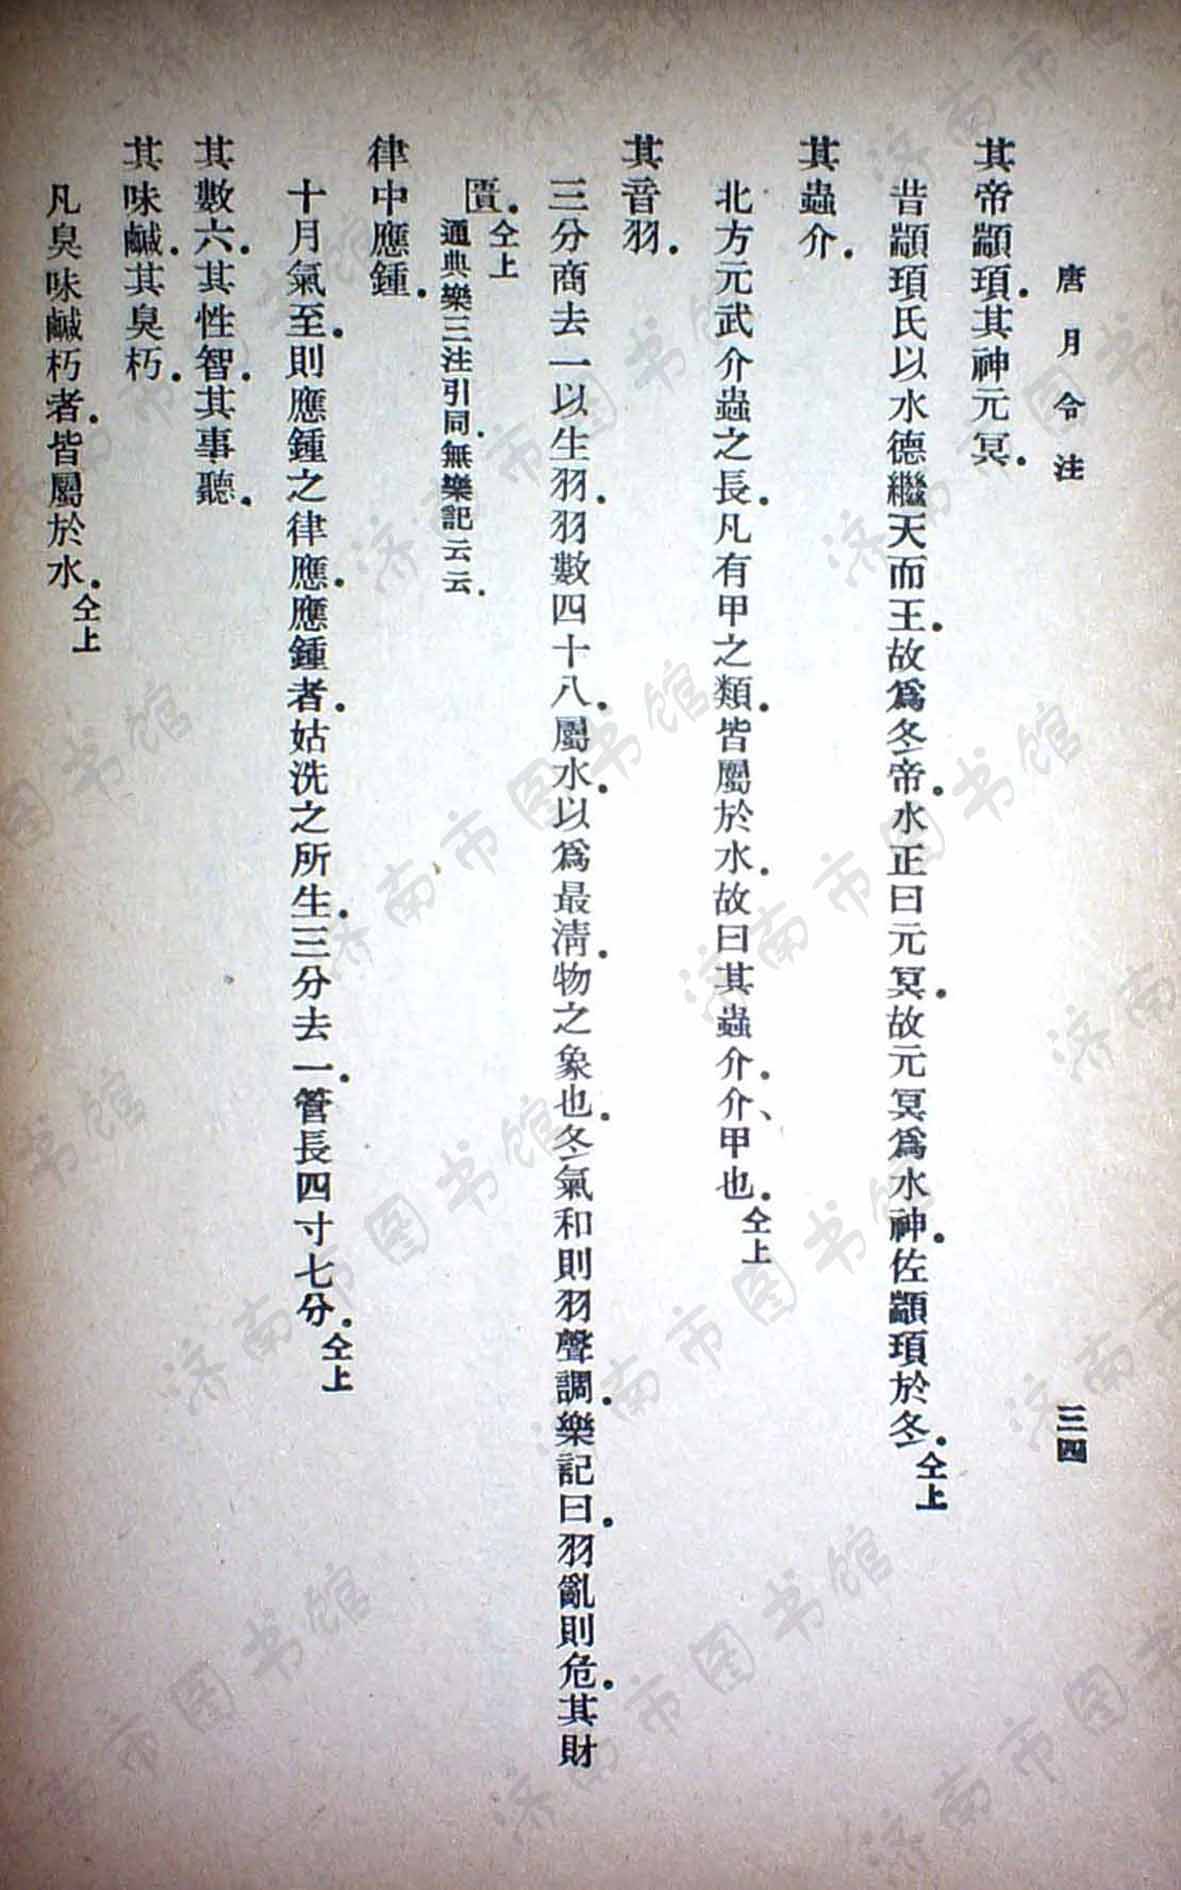 唐月令注
三四
其帝顓頊.其神元冥.
昔顓頊氏以水德繼天而王.故爲冬帝.水正曰元冥.故元冥爲水神.佐顓頊於冬.仝上
其蟲介.
北方元武介蟲之長.凡有甲之類.皆屬於水.故曰其蟲介.介、甲也.仝上
其音羽.
三分商去一以生羽.羽數四十八.屬水.以爲最淸.物之象也.冬氣和則羽聲調.樂記曰.羽亂則危.其財
匱.仝上
通典樂三注引同.無樂記云云.
律中應鍾.
十月氣至.則應鍾之律應.應鍾者.姑洗之所生.三分去一.管長四寸七分.仝上
其數六.其性智.其事聽.
其味鹹.其臭朽.
凡臭味鹹朽者.皆屬於水.仝上
济南市图书馆